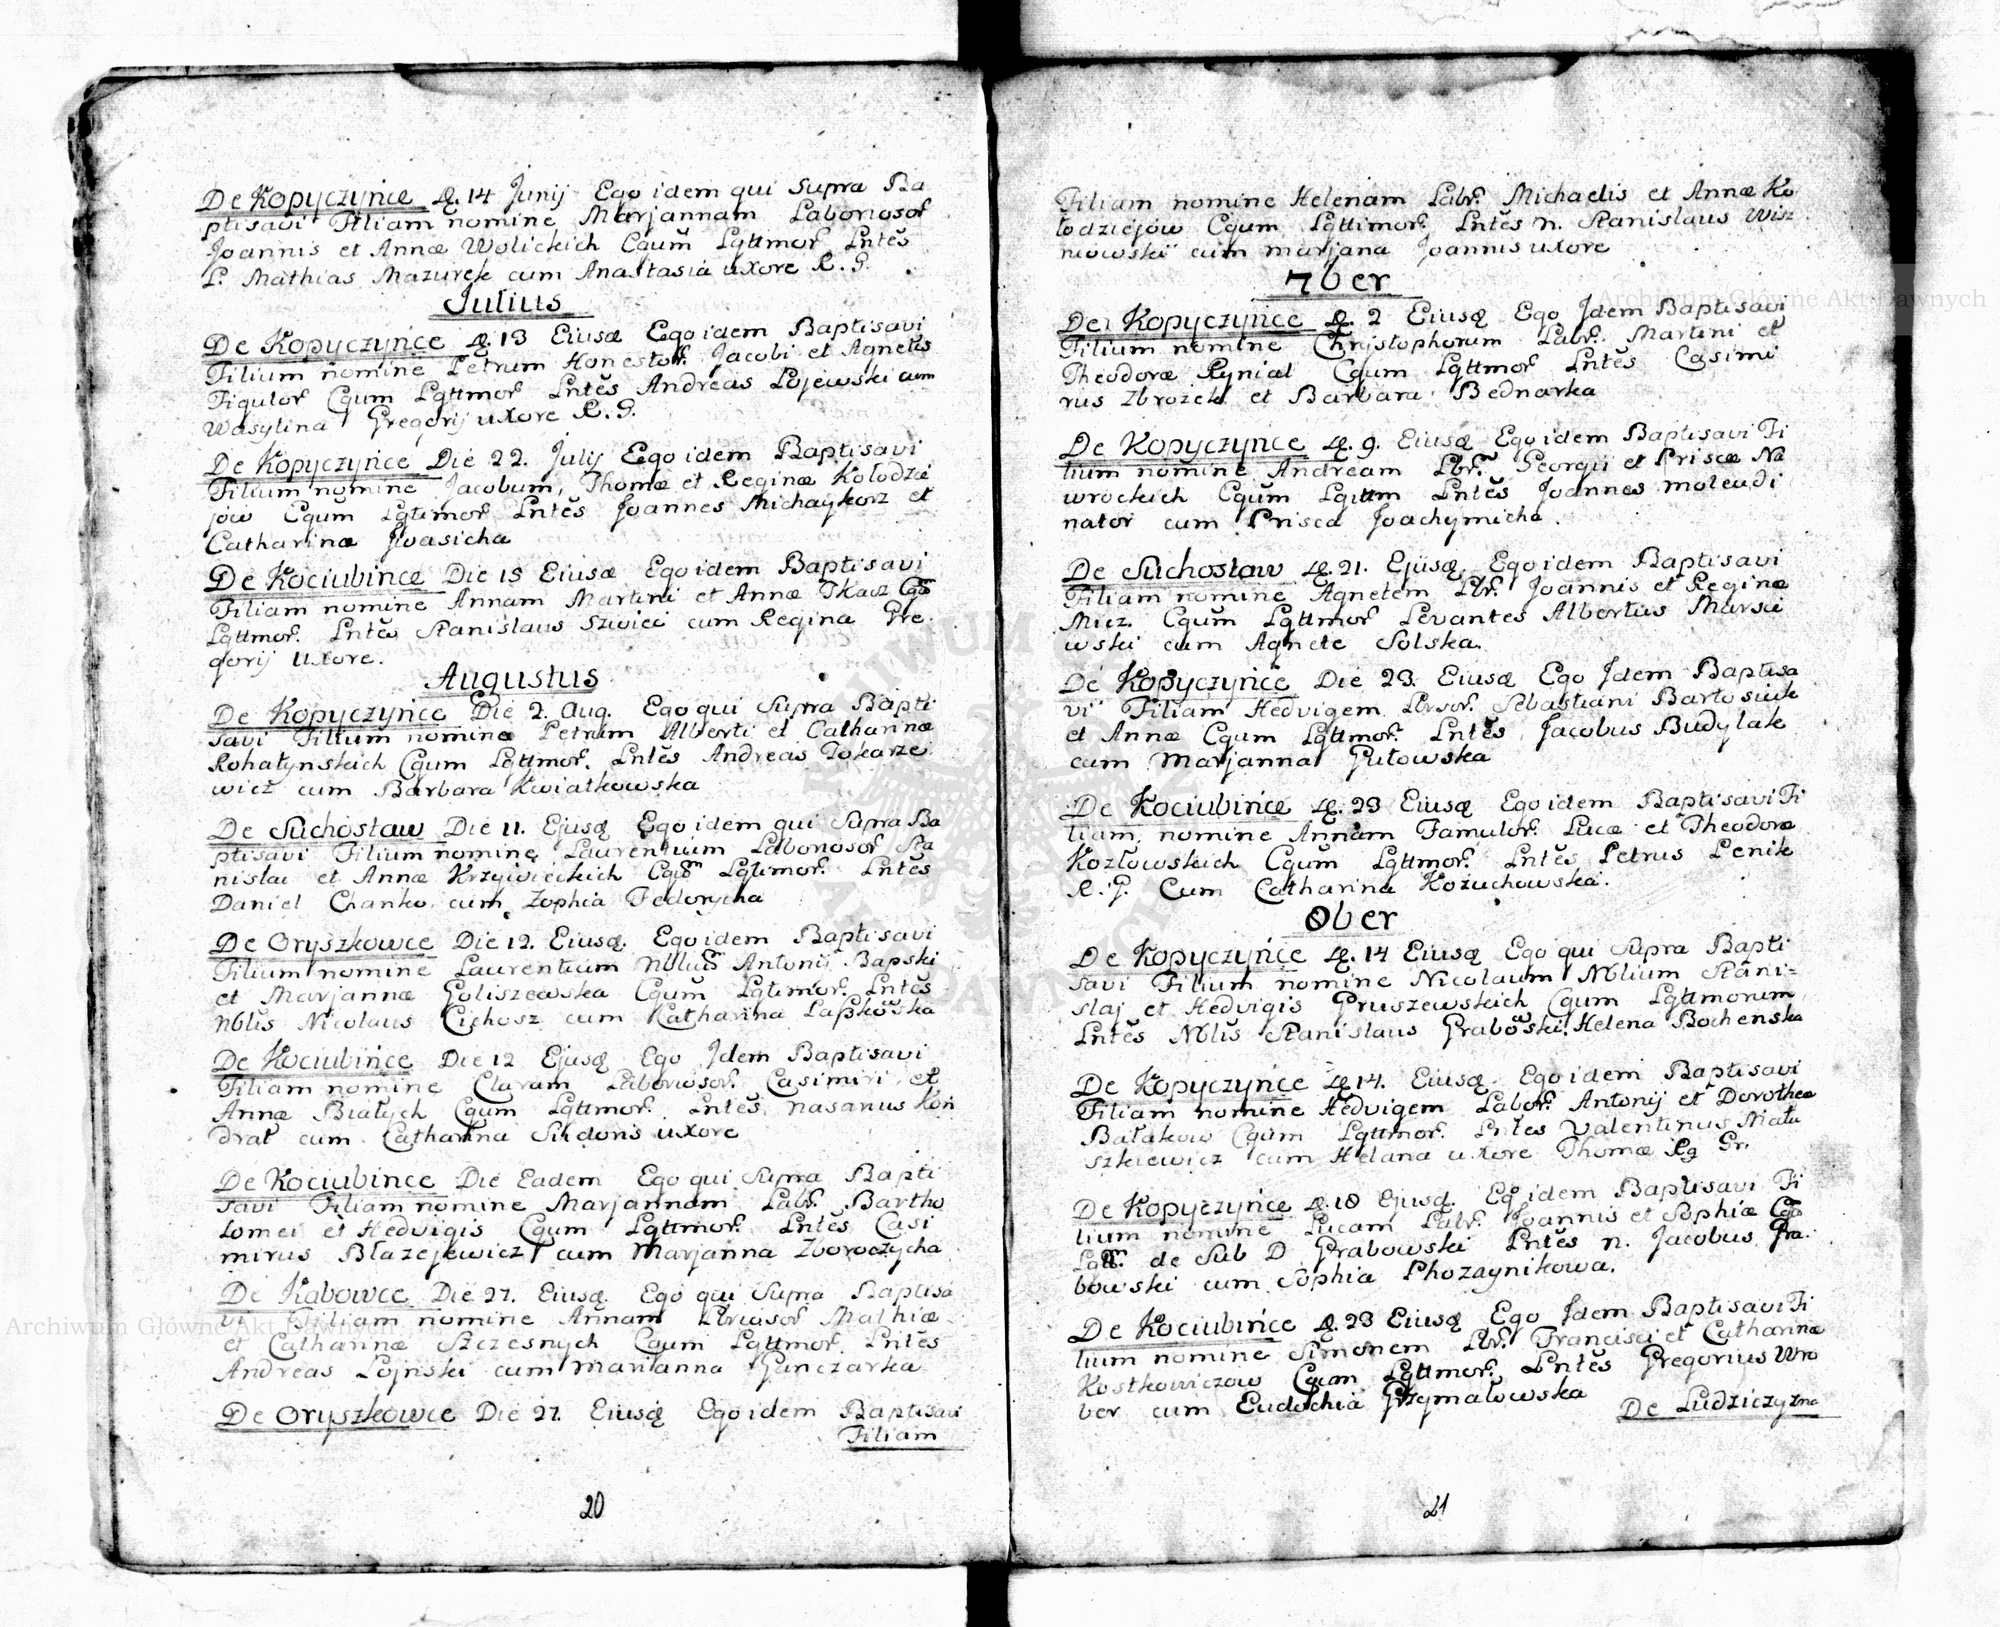 De Kopyczyńce d. 14 Junij Ego idem qui Supra Ba
ptisavi Filiam nomine Marjannam Laboriosor
Joannis et Annæ Wolickich Cgum Lgttmor Lntes
P. Mathias Mazurek cum Anastasia uxore R. G.
Julius
De Kopyczyńce d. 13 Eiusq Ego idem Baptisavi
Filium nomine Petrum Honestor. Jacobi et Agnetis
Figulor Cgum Lgttmor Lntes Andreas Lojewski cum
Wasylina Gregorij uxore R. G.
De Kopyczyńce Die 22. Julij Ego idem Baptisavi
Filium nomine Jacobum, Thomæ et Reginæ Kołodzie
jow Cgum Lgtimor Lntes Joannes Michaykorz et
Catharinæ Iwasicha
De Kociubince Die 15 Eiusq Ego idem Baptisavi
Filiam nomine Annam Martini et Annæ Tkacz Cgo
Lgttmor. Lntes Stanislaus Szwiec cum Regina Gre
gorij uxore.
Augustus
De Kopyczyńce Die 2. Aug. Ego qui Supra Bapti
savi Filium nomine Petrum Alberti et Catharinæ
Rohatynskich Cgum Lgttmor. Lntes Andreas Tokarze
wicz cum Barbara Kwiatkowska
De Suchostaw Die 11. Ejusq Ego idem qui Supra Ba
ptisavi Filium nomine Laurentium Laboriosor Sta
nislai et Annæ Krzywieckich Cgum Lgtimor. Lntes
Daniel Chanko cum Zophia Fedorycha
De Oryszkowce Die 12. Eiusq. Ego idem Baptisavi
Filium nomine Laurentium Nblium Antonij Bapski
et Marjannæ Goliszewska Cgum Lgtimor. Lntes
Nblis Nicolaus Cichosz cum Katharina Laßkowska
De Kociubińce Die 12 Ejusq Ego Idem Baptisavi
Filiam nomine Claram Laboriosor. Casimiri et
Annæ Białych Cgum Lgttmor. Lntes nasanus Kon
drat cum Catharina Sikdoris uxore
De Kociubince Die Eadem Ego qui Supra Bapti
savi Filiam nomine Marjannam Labr. Bartho
lomei et Hedvigis Cgum Lgttmor. Lntes Casi
mirus Błazejewicz cum Marjanna Zboroczycha
De Kabowce Die 27. Eiusq. Ego qui Supra Baptisa
vi Filiam nomine Annam Lbriosor Mathiæ
et Catharinæ Szczesnych Cgum Lgttmor. Lntes
Andreas Lojnski cum Marianna Ganczarka
De Oryszkowce Die 27. Eiusq Ego idem Baptisavi
Filiam
20
Filiam nomine Helenam Labr. Michaelis et Annæ Ko
łodziejow Cgum Lgttimor. Lntes n. Stanislaus Wisz
niowski cum marjana Joannis uxore
7ber
De Kopyczyńce d. 2 Eiusq Ego Idem Baptisavi
Filium nomine Christophorum Labr. Martini et
Theodoræ Rynial Cgum Lgttmor Lntes Casimi
rus Zbrozek et Barbara Bednarka
De Kopyczynce d. 9. Eiusq Ego idem Baptisavi Fi
lium nomine Andream Lbr. Georgii et Priscæ Na
wrockich Cgum Lgittm Lntes Joannes molendi
nator cum Prisca Joachymicha.
De Suchostaw d. 21. Ejusq. Ego idem Baptisavi
Filiam nomine Agnetem Lbr. Joannis et Reginæ
Micz. Cgum Lgttmor Levantes Albertus Mursie
wski cum Agnete Solska.
De Kopyczyńce Die 23. Eiusq Ego Idem Baptisa
vi Filiam Hedvigem Lbrsor. Sebastiani Bartosiuk
et Annæ Cgum Lgttmor. Lntes Jacobus Budylak
cum Marjanna Gutowska
De Kociubińce d. 23 Eiusq Ego idem Baptisavi Fi
liam nomine Annam Famulor. Lucæ et Theodoræ
Kozłowskich Cgum Lgttmor. Lntes Petrus Penik
R. G. Cum Catharina Kozuchowska.
8ber
De Kopyczyńce d. 14 Eiusq Ego qui Supra Bapti
savi Filium nomine Nicolaum Nblium Stani-
slaj et Hedvigis Gruszewskich Cgum Lgttmorum
Lntes Nblis Stanislaus Grabowski Helena Bochenska
De Kopyczyńce d. 14. Eiusq. Ego idem Baptisavi
Filiam nomine Hedvigem Labor. Antonij et Dorotheæ
Bałakow Cgum Lgttmor. Lntes Valentinus Matu
szkiewicz cum Helana uxore Thomæ Rg Gr.
De Kopyczyńce d. 18 Ejusq. Eg idem Baptisavi Fi
lium nomine Lucam Labr. Joannis et Sophiæ Cgo
Lgtt. de Sub D Grabowski Lntes n. Jacobus Gra
bowski cum Sophia Phozaynikowa.
De Kociubińce d. 23 Eiusq Ego Idem Baptisavi Fi
lium nomine Simonem Lbr. Francisci et Catharinæ
Kostkowiczow Cgum Lgttmor. Lntes Gregorius Wro
ber cum Eudochia Grzymałowska
De Ludziczyzna
21
Archiwum Główne Akt Dawnych
Archiwum Główne Akt Dawnych